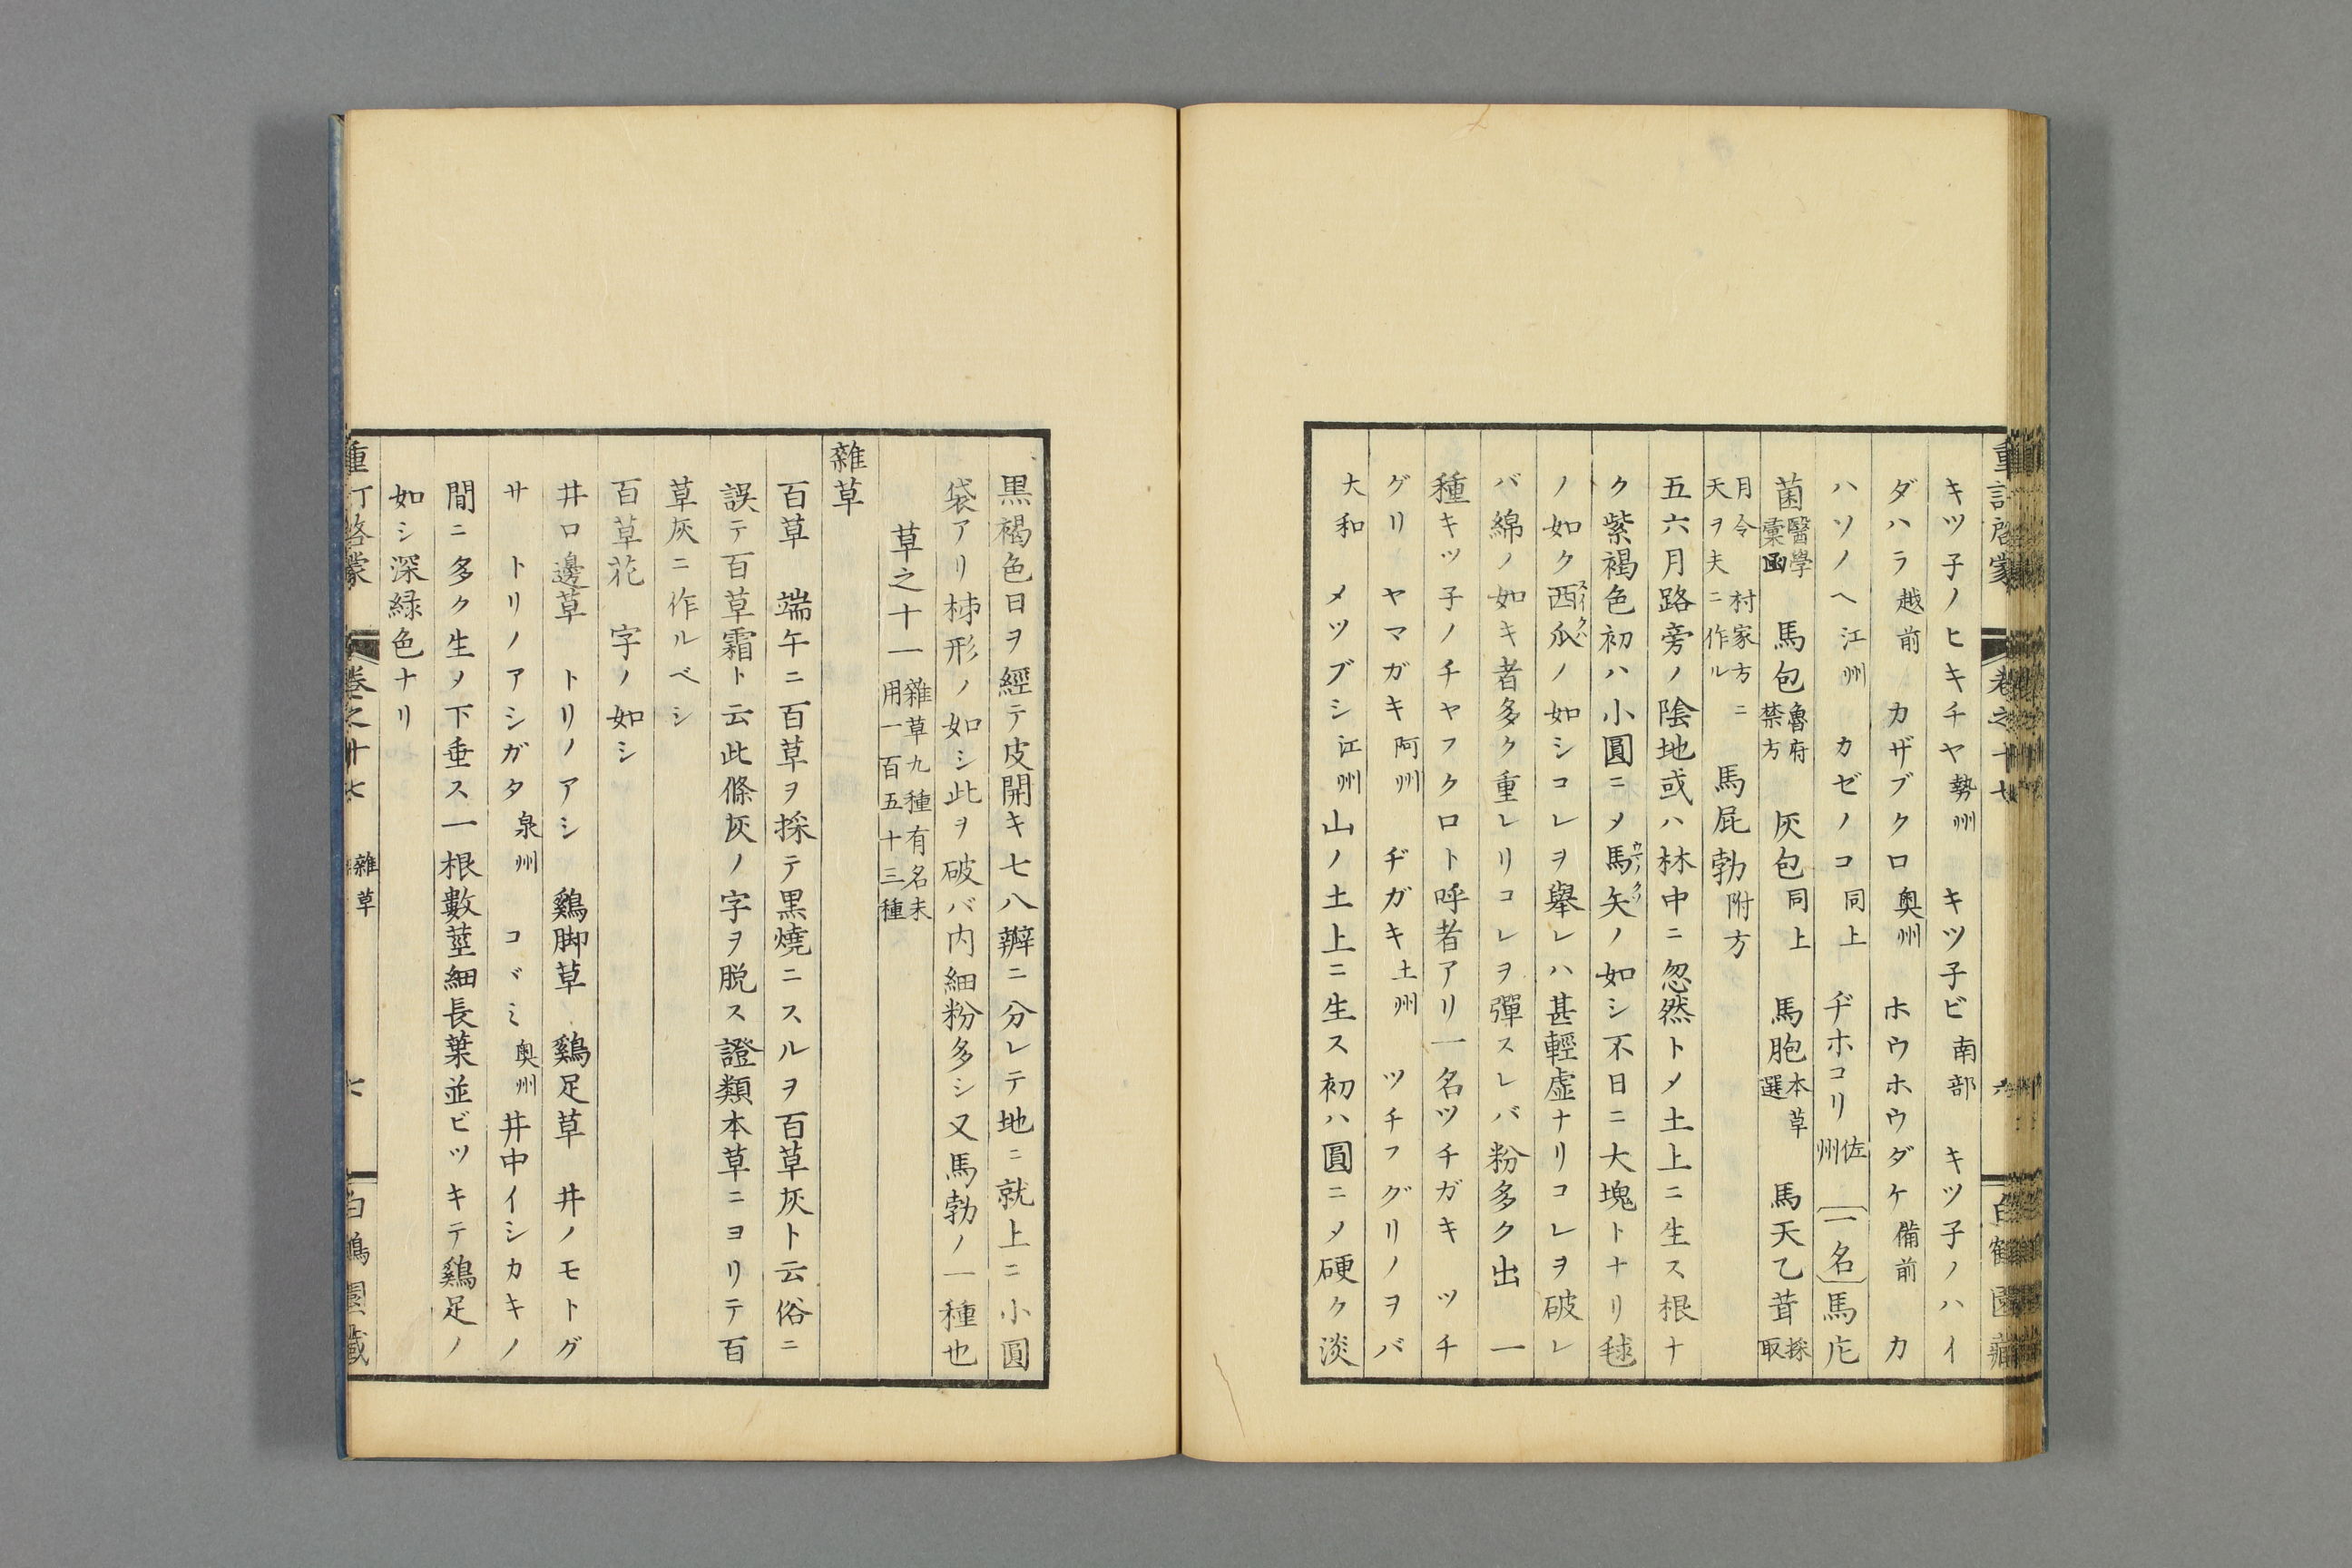 キツ子ノヒキチヤ勢州 キツ子ビ南部 キツ子ノハイ
ダハラ越前 カザブクロ奥州 ホウホウダケ備前 カ
ハソノヘ江州 カゼノコ同上 ヂホコリ佐州 〔一名〕馬庀
菌醫學彙函 馬包魯府禁方 灰包同上 馬胞本草選 馬天乙茸採取
月令 村家方ニ天ヲ夫ニ作ル 馬屁勃附方
五六月路旁ノ陰地或ハ林中ニ忽然トメ土上ニ生ス根ナ
ク紫褐色初ハ小圓ニメ馬矢ノ如シ不日ニ大塊トナリ毬
ノ如ク西瓜ノ如シコレヲ舉レハ甚輕虛ナリコレヲ破レ
バ綿ノ如キ者多ク重レリコレヲ彈スレバ粉多ク出 一
種キツ子ノチヤフクロト呼者アリ一名ツチガキ ツチ
グリ ヤマガキ阿州 ヂガキ土州 ツチフグリノヲバ
大和 メツブシ江州山ノ土上ニ生ス初ハ圓ニメ硬ク淡
黒褐色日ヲ經テ皮開キ七八瓣ニ分レテ地ニ就上ニ小圓
袋アリ柹形ノ如シ此ヲ破バ内細粉多シ又馬勃ノ一種也
草之十一雜草九種有名未用一百五十三種
雜草
百草 端午ニ百草ヲ採テ黒燒ニスルヲ百草灰ト云俗ニ
誤テ百草霜ト云此條灰ノ字ヲ脱ス證類本草ニヨリテ百
草灰ニ作ルベシ
百草花 字ノ如シ
井口邊草 トリノアシ 鷄脚草 鷄足草 井ノモトグ
サ トリノアシガタ泉州 コヾミ奥州井中イシカキノ
間ニ多ク生ヲ下垂ス一根數莖細長葉並ビツキテ鷄足ノ
如シ深緑色ナリ
重訂啓蒙 卷之十七 雜草 七 白鶴園藏